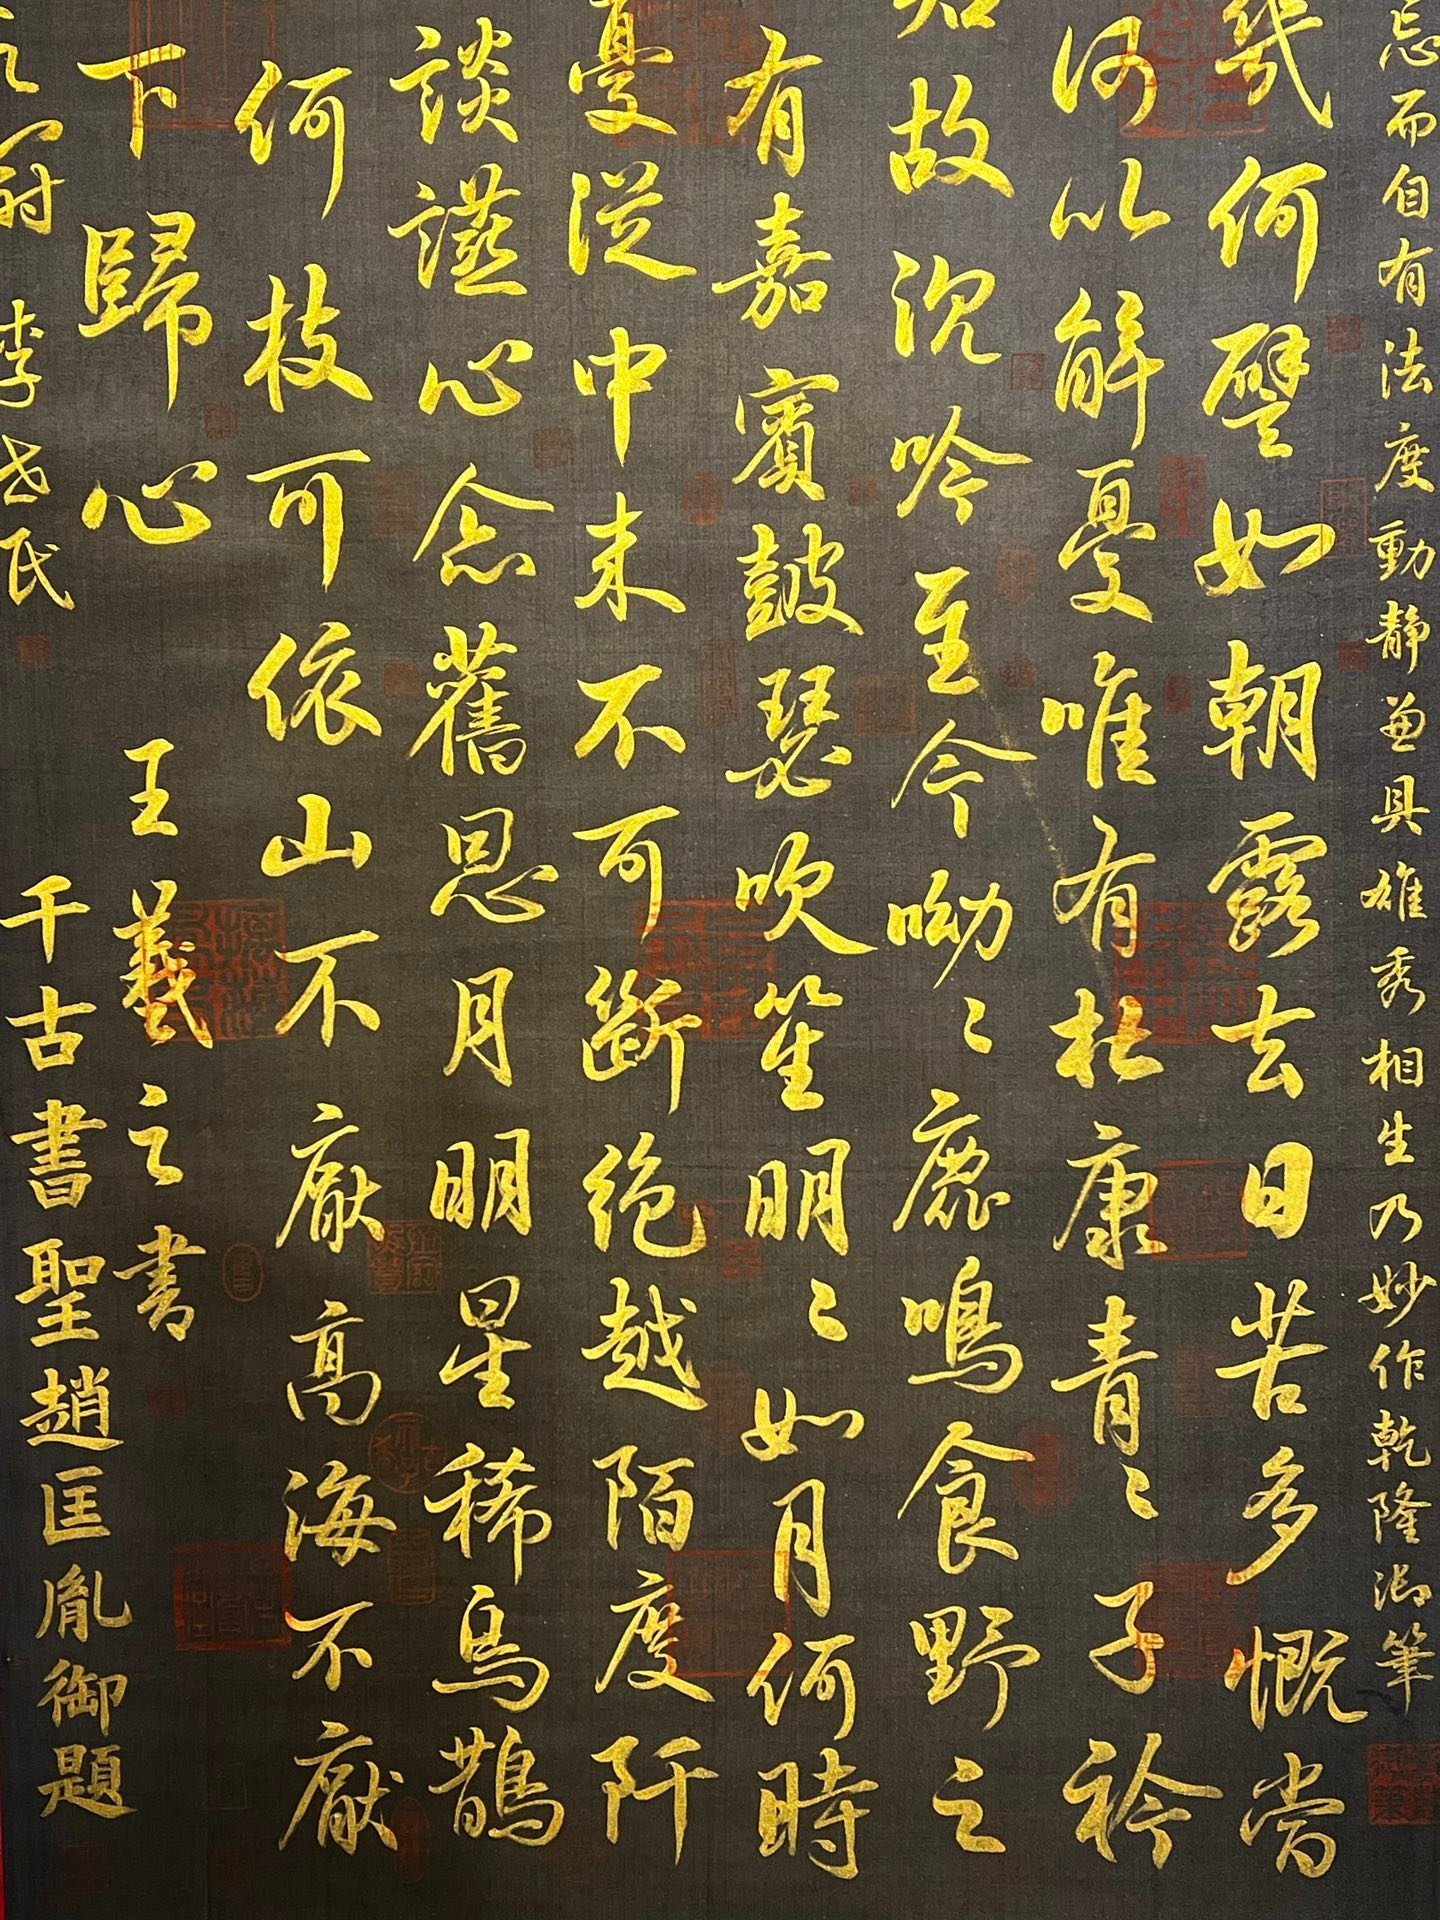 忘而自有法度動静兼具雄秀相生乃妙作乾隆御筆
幾何譬如朝露去日苦多慨當
何以解憂唯有杜康青〻子衿
故沉吟至今呦〻鹿鳴食野之
有嘉賓鼓瑟吹笙明〻如月何時
憂從中来不可斷絶越陌度阡
談讌心念舊恩月明星稀烏鵲
何枝可依山不厭高海不厭
下歸心
王羲之書
李世民
千古書聖趙匡胤御題